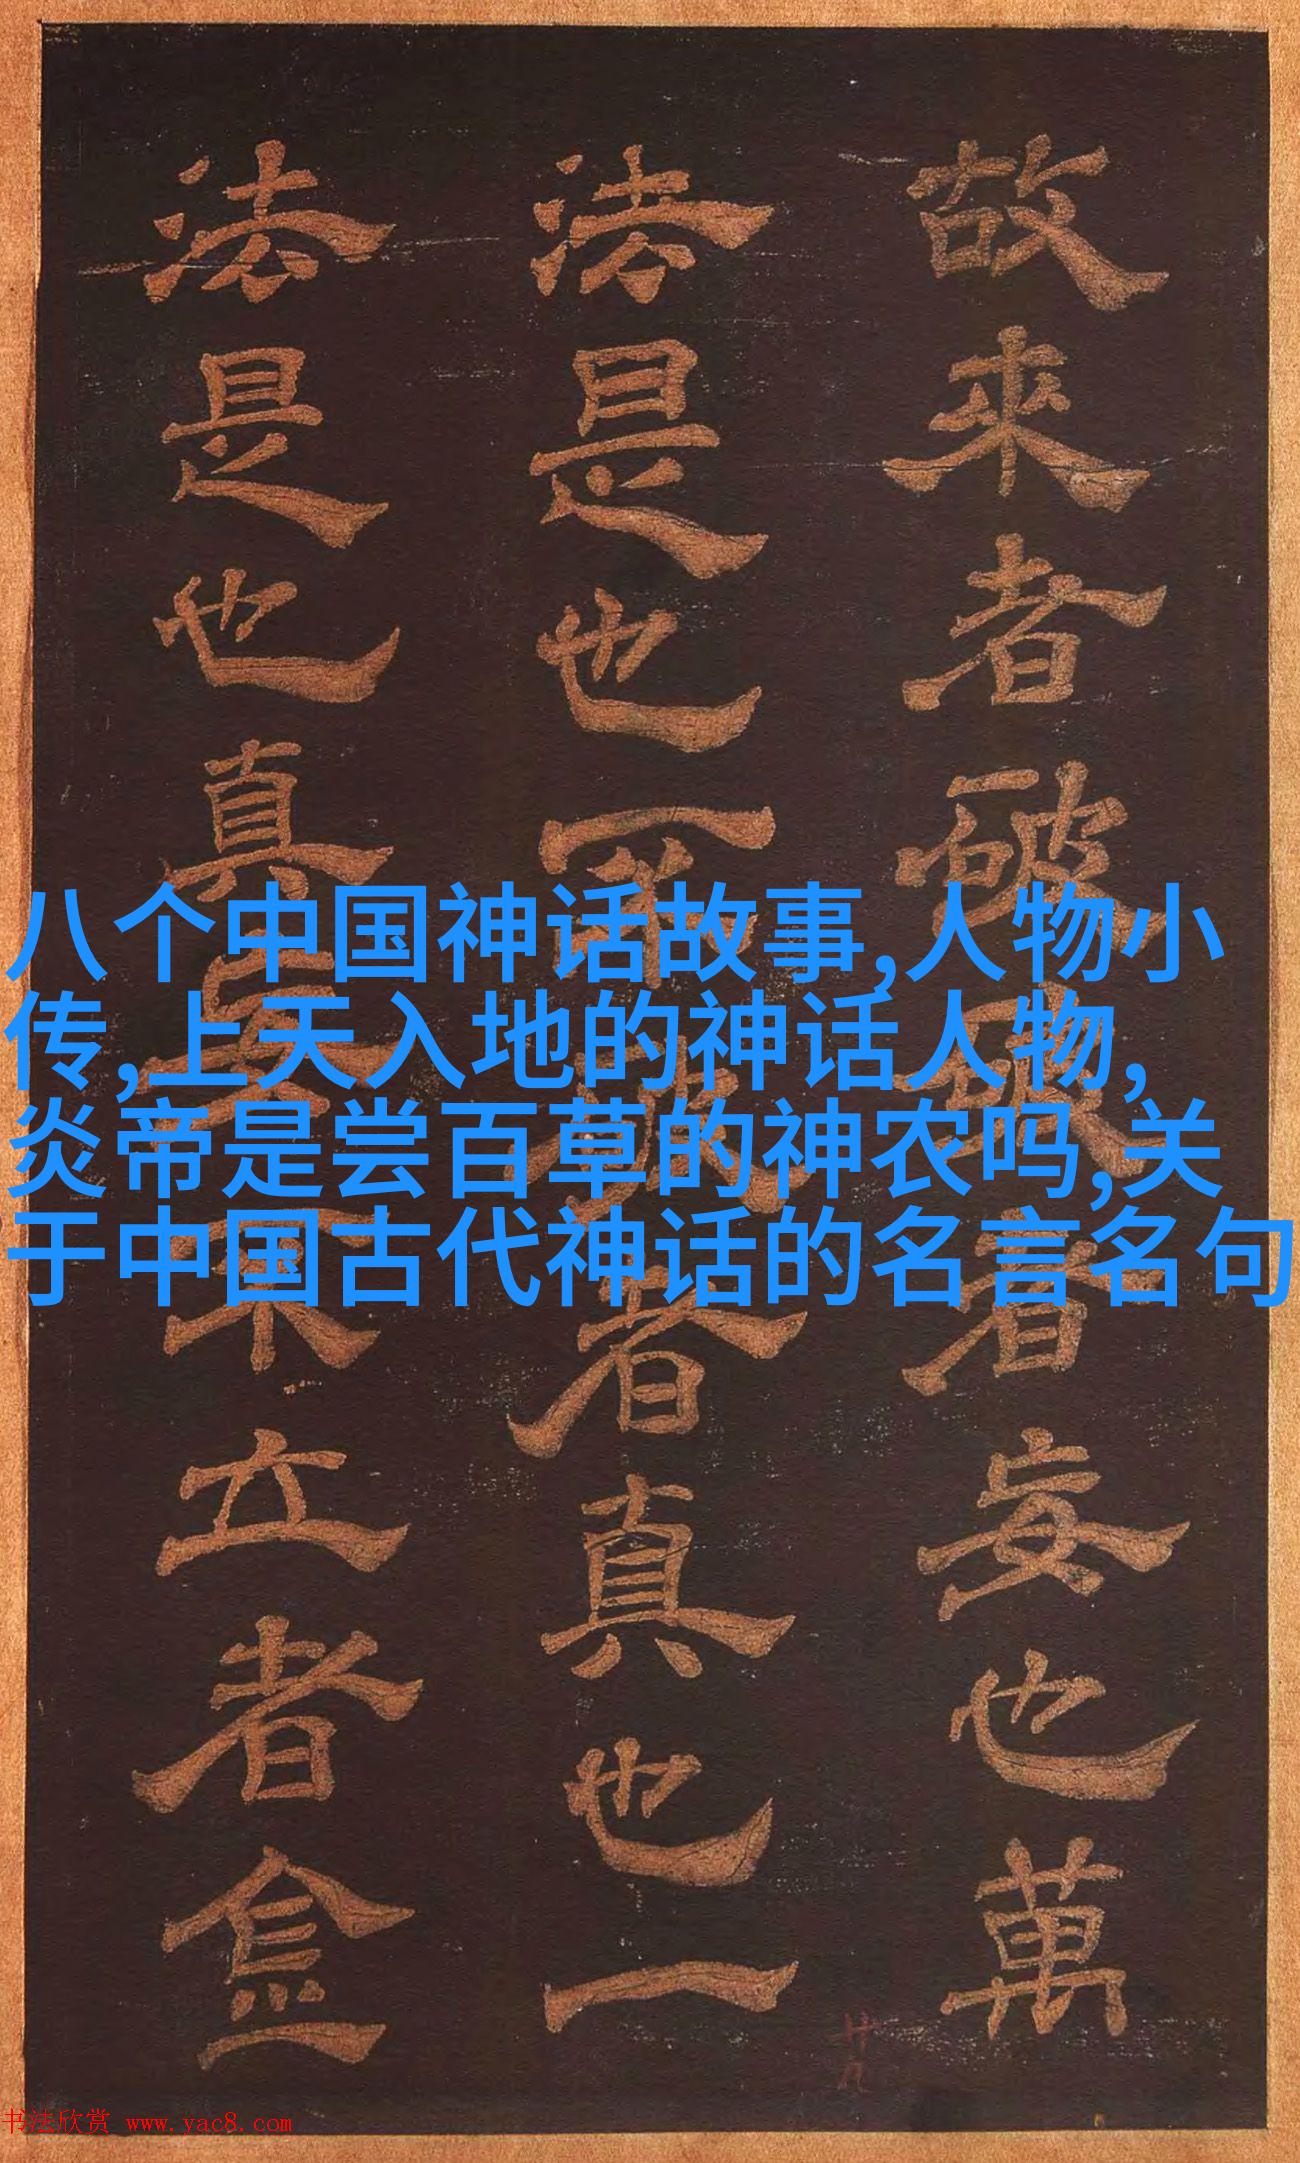 八个中国神话故事,人物小
传,上天入地的神话人物,
炎帝是尝百草的神农吗,关
于中国古代神话的名言名句
故來者者妄也萬
法是也者真也一
法是也真立者
书法欣赏 www.yac8.com